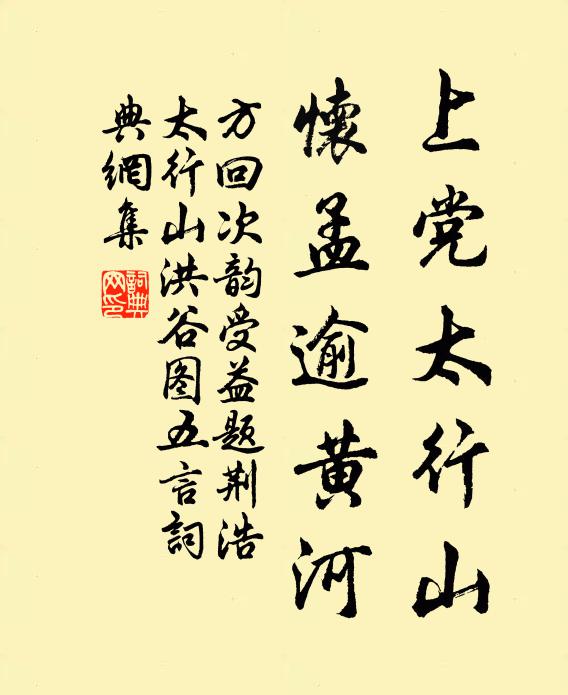 上党太行山
懷孟逾黄河
方回次韵受益題荆浩
太行山洪谷图五言詞
典網集
詞典
网印